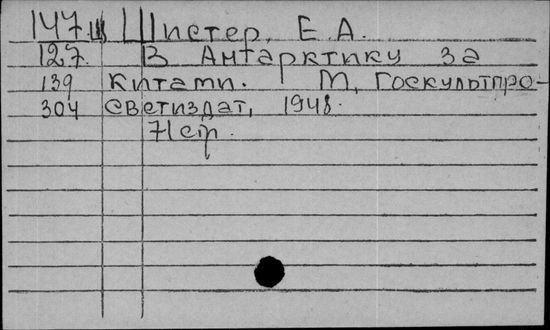 147.ш Шистер, Е.А.
127. В Антарктику за
139 китами. М, Госкультпро-
304 светиздат, 1948.
71 стр.